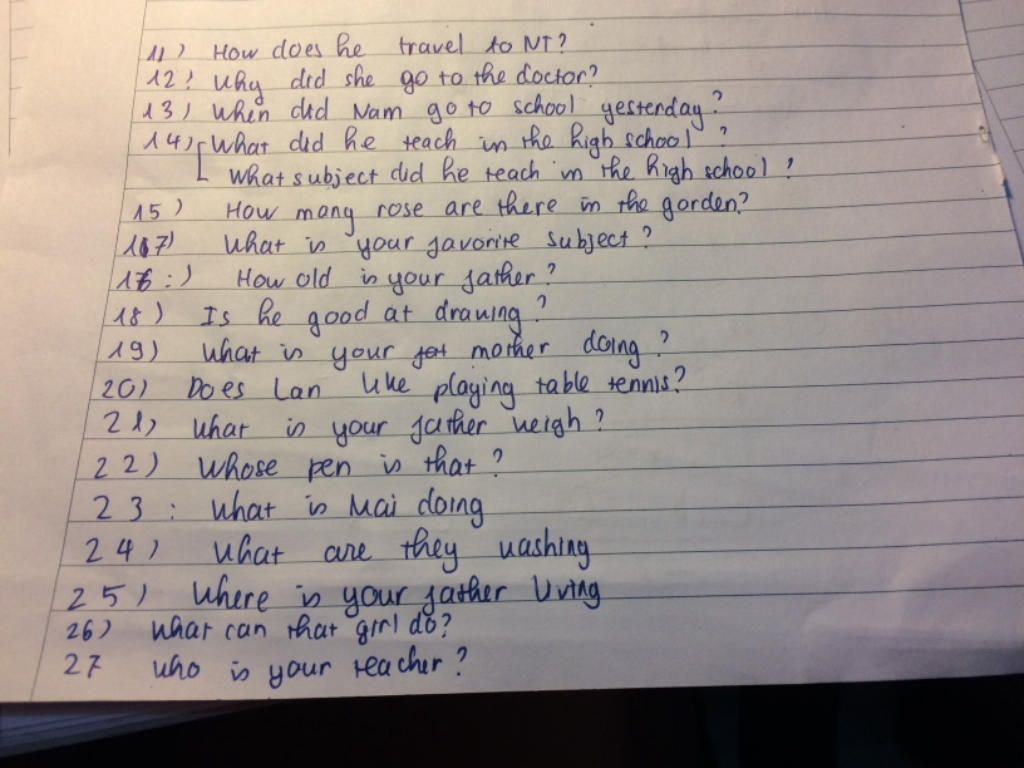 11) How does he travel to NT?
12! Why did she go to the doctor?
13) When did Nam go to school yesterday?
14) What did he teach in the high school ?
What subject did he teach in the high school ?
15) How many rose are there in the garden?
17) What is your favorite subject ?
16:) How old is your father ?
18) Is he good at drawing ?
19) What is your mother doing ?
20) Does Lan like playing table tennis?
21) What is your father weigh ?
22) Whose pen is that ?
23 : What is Mai doing
24) What are they washing
25) Where is your father living
26) What can that girl do?
27 Who is your teacher ?